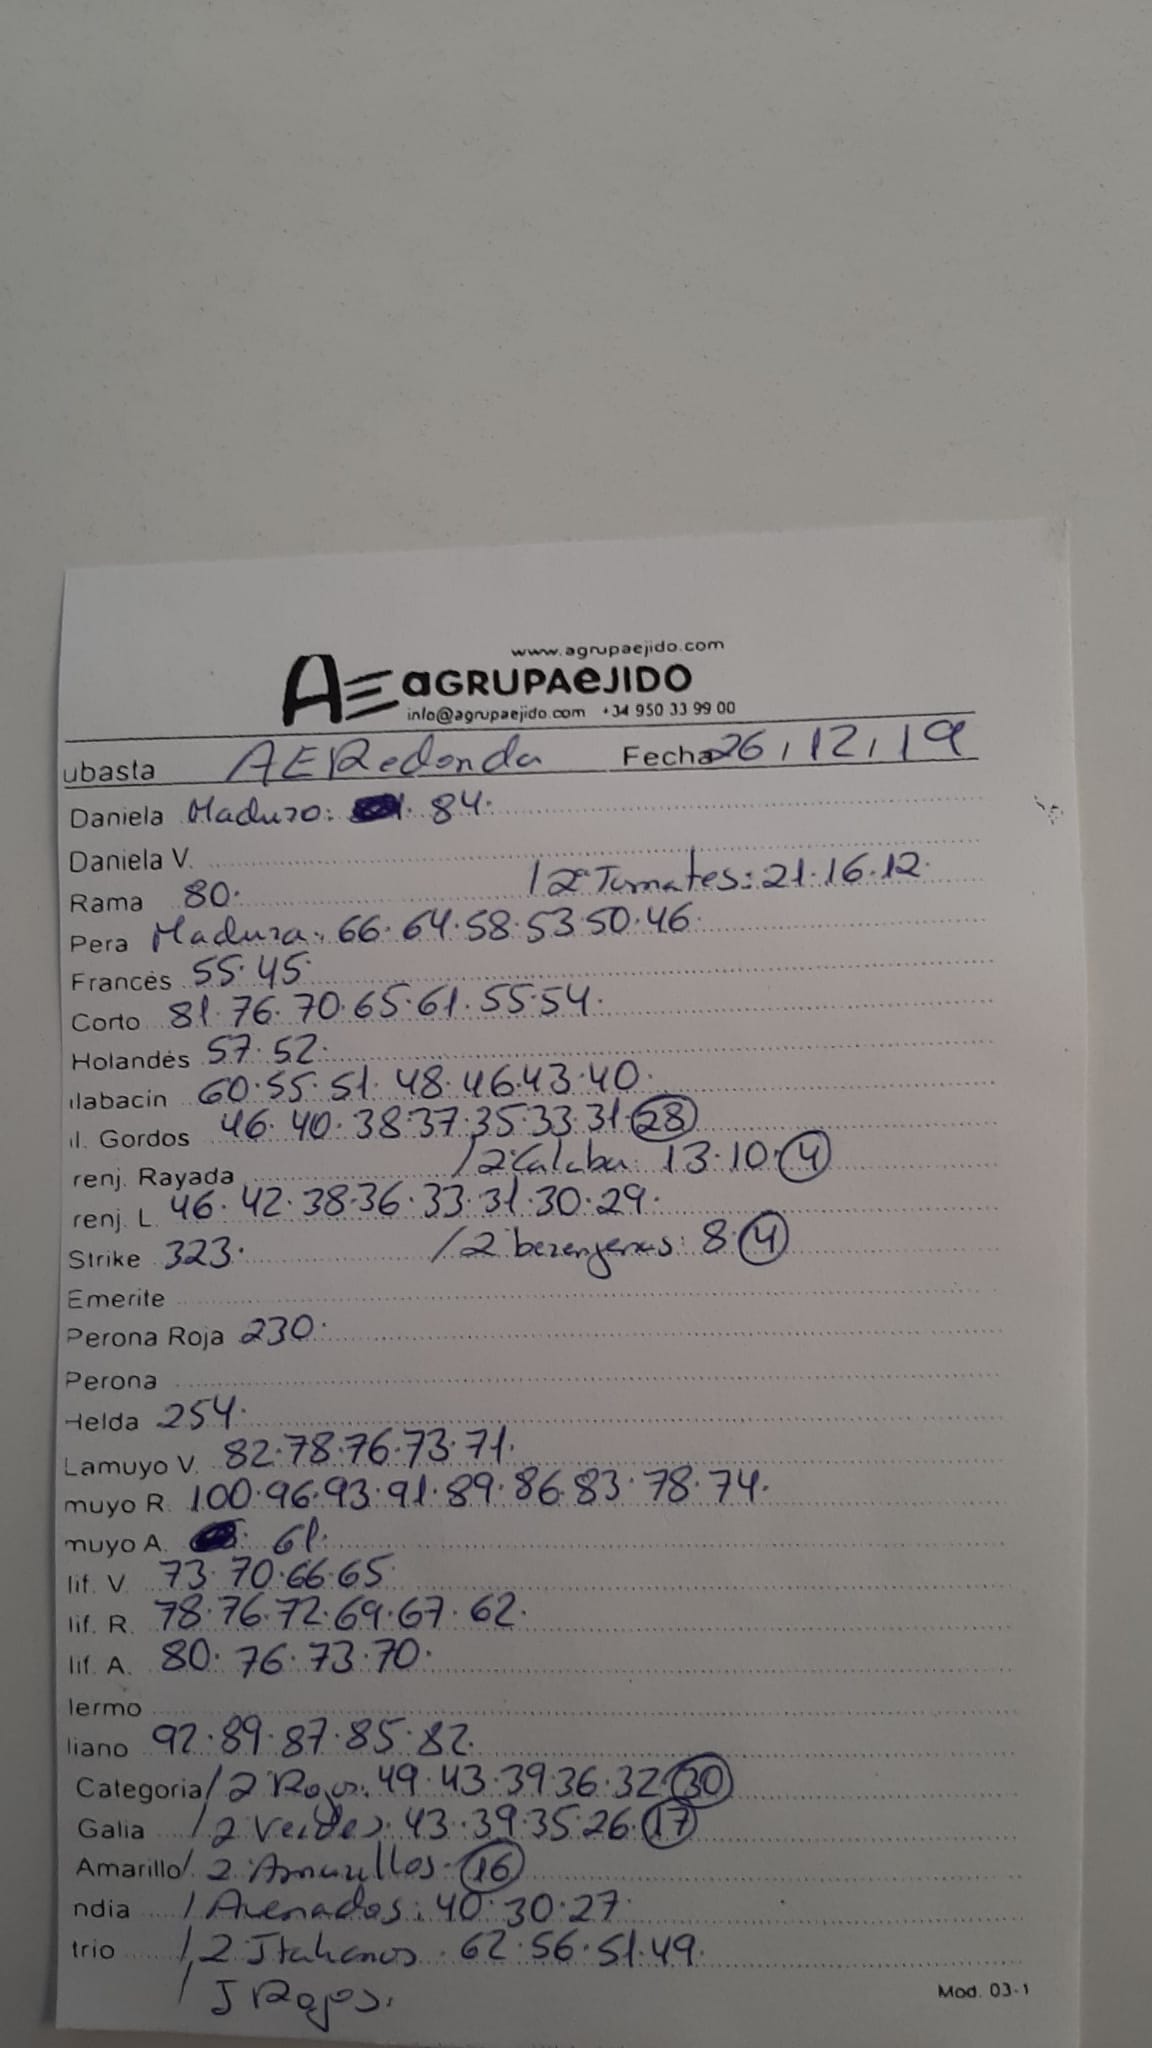 www.agrupaejido.com
AE aGRUPAeJIDO
info@agrupaejido.com +34 950 33 99 00
ubasta AE Redonda Fecha 26/12/19
Daniela Maduro: 84.
Daniela V.
Rama 80. / 2ª Tomates: 21.16.12.
Pera Madura: 66.64.58.53.50.46.
Francés 55.45.
Corto 81.76.70.65.61.55.54.
Holandés 57.52.
labacin 60.55.51.48.46.43.40.
l. Gordos 46.40.38.37.35.33.31.28
renj. Rayada / 2ª Calaba: 13.10.4
renj. L. 46.42.38.36.33.31.30.29.
Strike 323. / 2 berenjenas: 8.4
Emerite
Perona Roja 230.
Perona
Helda 254.
Lamuyo V. 82.78.76.73.71.
muyo R. 100.96.93.91.89.86.83.78.74.
muyo A. 61.
lif. V. 73.70.66.65.
lif. R. 78.76.72.69.67.62.
lif. A. 80.76.73.70.
lermo
liano 92.89.87.85.82.
Categoria / 2 Rojos: 49.43.39.36.32.30
Galia / 2 Verdes: 43.39.35.26.17
Amarillo / 2 Amarillos: 16
ndia / Asenados: 40.30.27.
trio / 2 Italianos. 62.56.51.49.
/ J Rojos.
Mod. 03-1